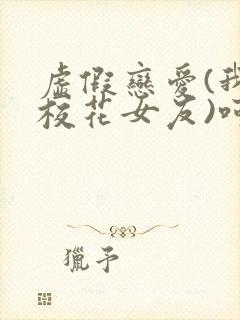 虛假戀愛(我
校花女友)呵
獵予